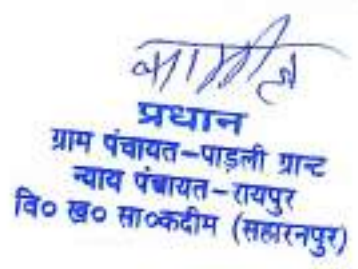 प्रधान
ग्राम पंचायत-पाड़ली ग्रान्ट
न्याय पंचायत-रायपुर
वि० ख० सा०कदीम (सहारनपुर)